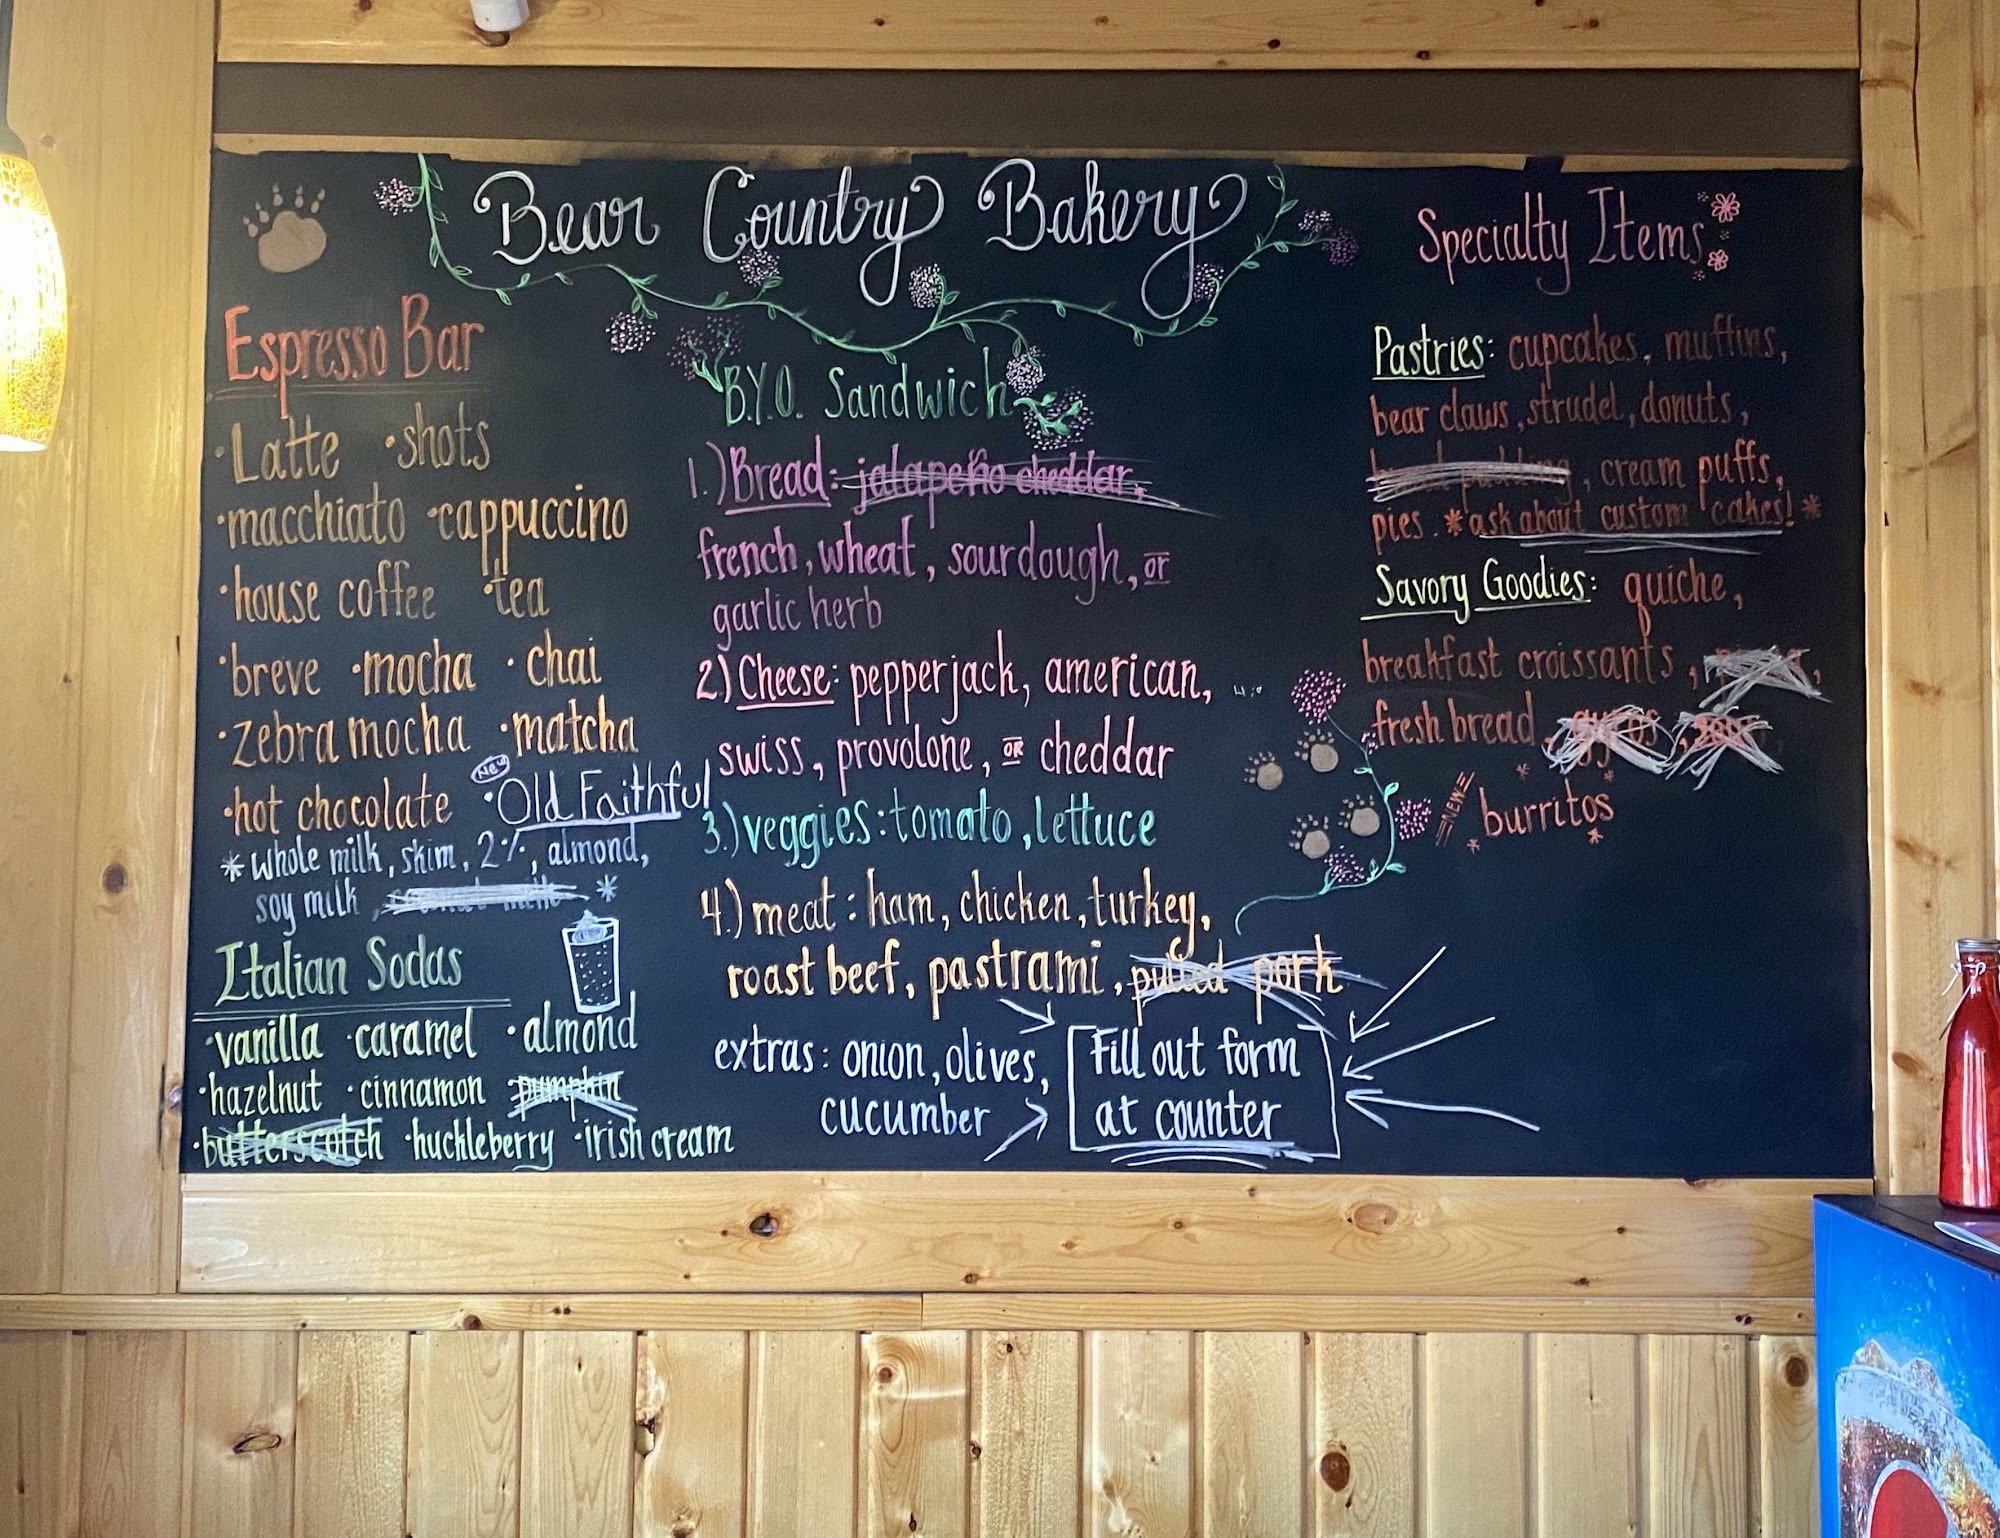 Bear Country Bakery
Espresso Bar
·Latte ·shots
·macchiato ·cappuccino
·house coffee ·tea
·breve ·mocha ·chai
·zebra mocha ·matcha
New
·hot chocolate ·Old Faithful
*whole milk, skim, 2%, almond,
soy milk, *
Italian Sodas
·vanilla ·caramel ·almond
·hazelnut ·cinnamon pumpkin
·butterscotch ·huckleberry ·irish cream
B.Y.O. Sandwich
1.) Bread: jalapeño cheddar,
french, wheat, sourdough, or
garlic herb
2.) Cheese: pepperjack, american,
swiss, provolone, or cheddar
3.) veggies: tomato, lettuce
4.) meat: ham, chicken, turkey,
roast beef, pastrami, pulled pork
extras: onion, olives,
cucumber
Fill out form
at counter
Specialty Items
Pastries: cupcakes, muffins,
bear claws, strudel, donuts,
bread pudding, cream puffs,
pies. *ask about custom cakes!*
Savory Goodies: quiche,
breakfast croissants, ,
fresh bread, gyros,
NEW burritos